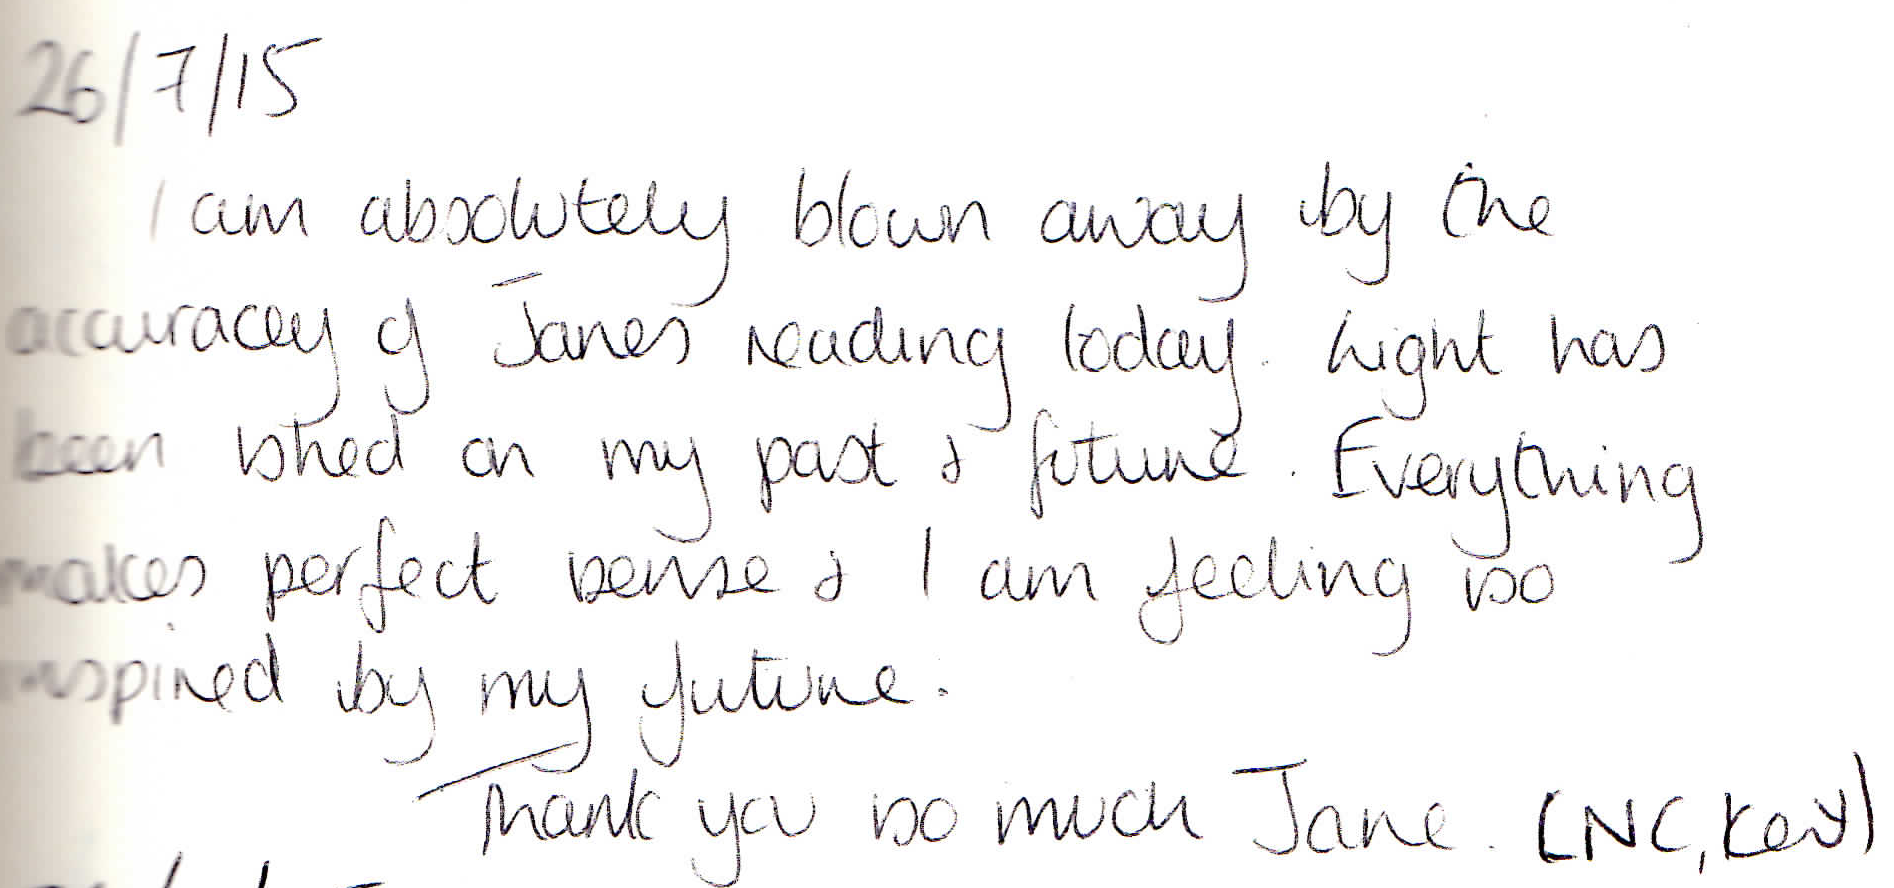 26/7/15
I am absolutely blown away by the
accuracey of Janes reading today. Light has
been shed on my past & future. Everything
makes perfect sense & I am feeling so
inspired by my future.
Thank you so much Jane. (NC, Kent)